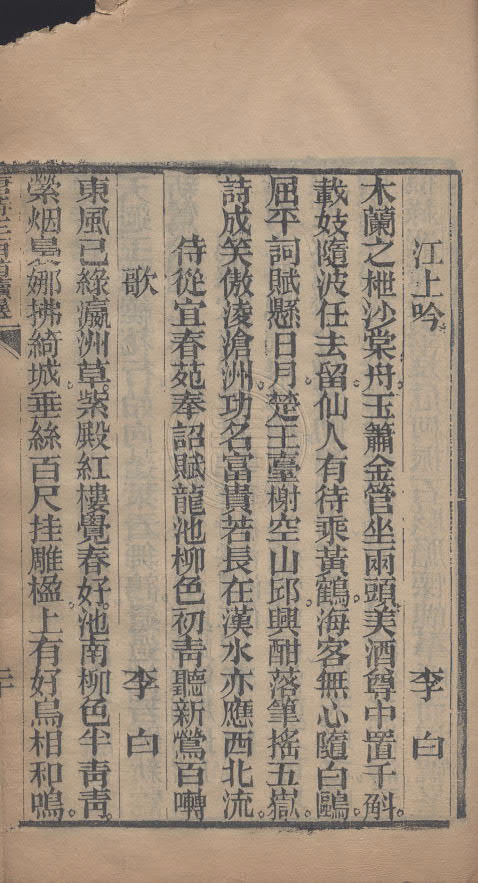 江上吟 李白
木蘭之枻沙棠舟。玉簫金管坐兩頭。美酒尊中置千斛。
載妓隨波任去留。仙人有待乘黃鶴。海客無心隨白鷗。
屈平詞賦懸日月。楚王臺榭空山邱。興酣落筆搖五嶽。
詩成笑傲凌滄洲。功名富貴若長在。漢水亦應西北流。
侍從宜春苑奉詔賦龍池柳色初靑聽新鶯百囀
歌 李白
東風已綠瀛洲草。紫殿紅樓覺春好。池南柳色半靑靑。
縈烟裊娜拂綺城。垂絲百尺挂雕楹。上有好鳥相和鳴。